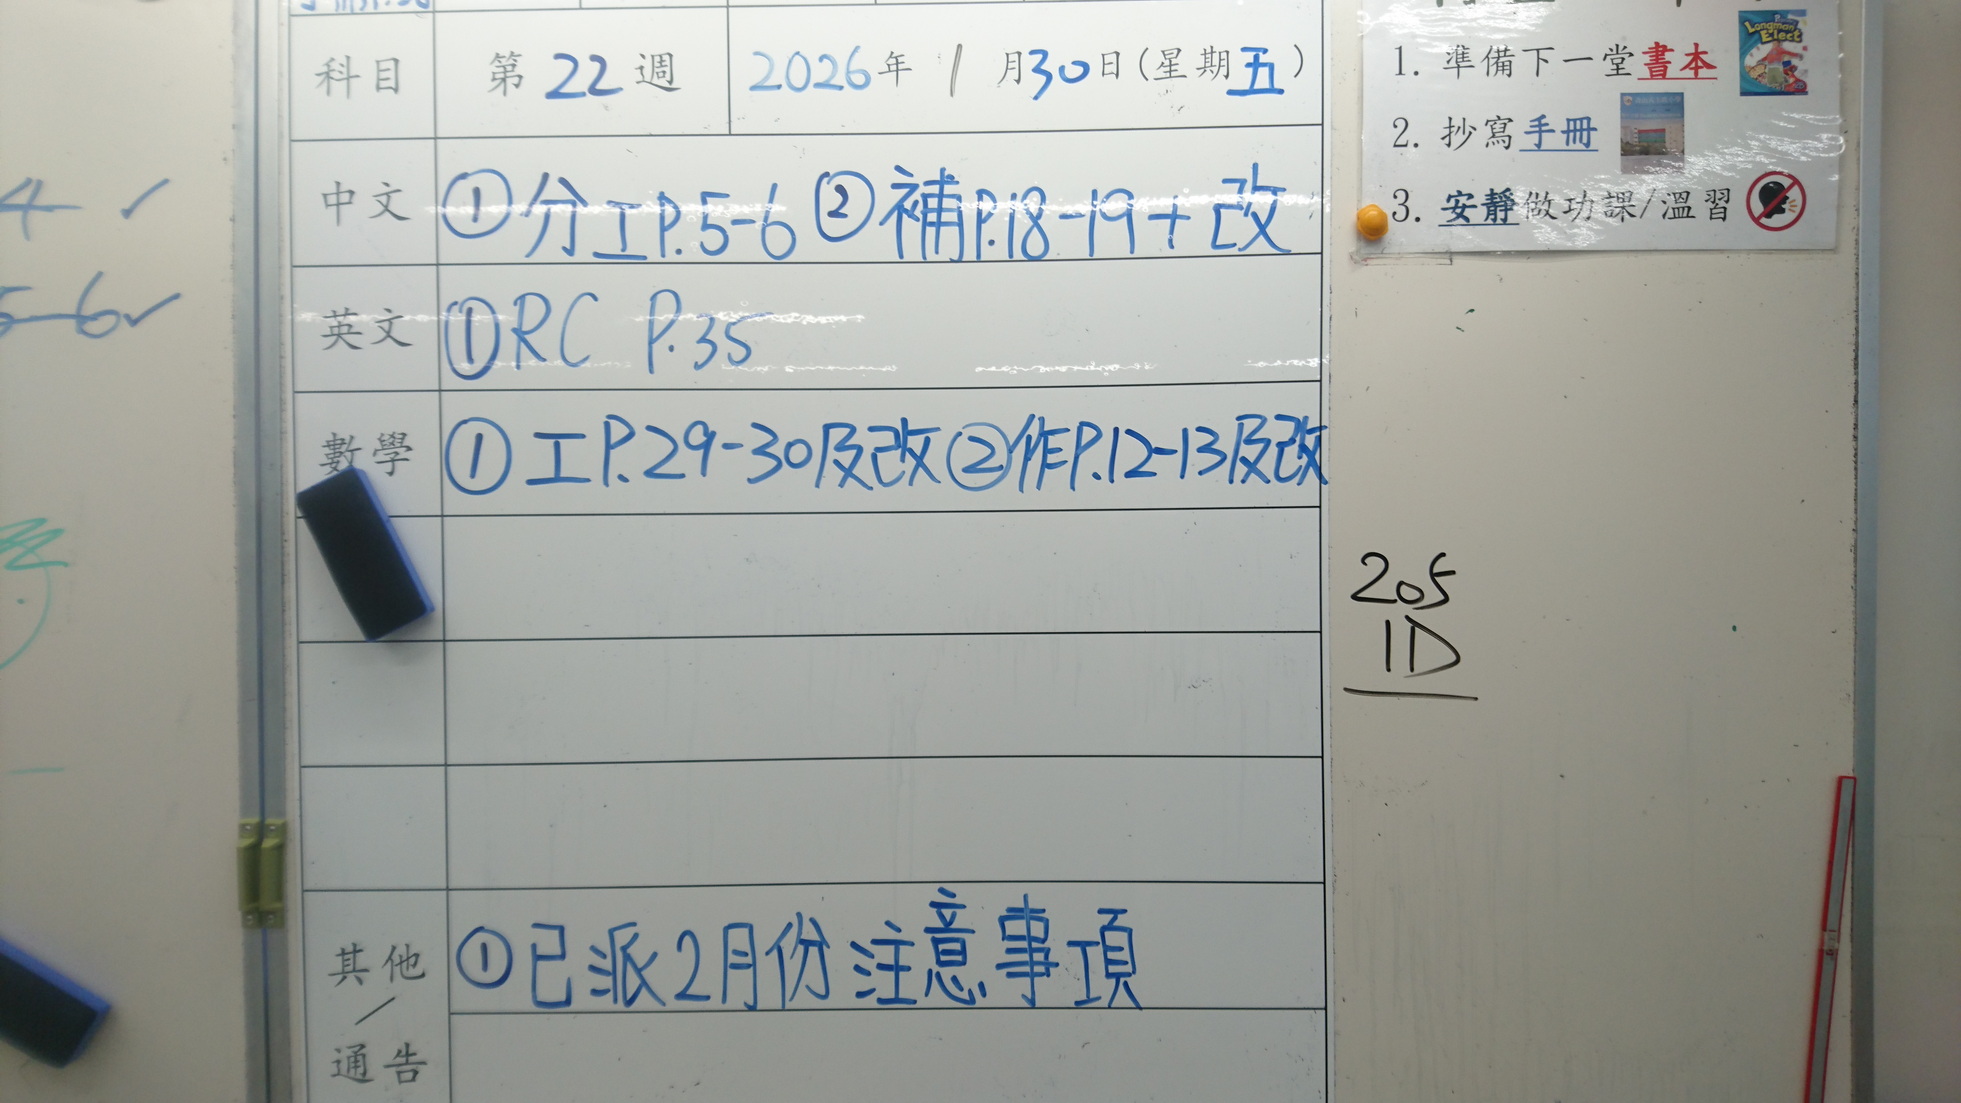 科目 第22週 2026年1月30日(星期五)
中文 ①分工P.5-6 ②補P.18-19+改
英文 ①RC P.35
數學 ①工P.29-30及改②作P.12-13及改
其他/通告 ①已派2月份注意事項
1. 準備下一堂書本
Longman Elect
2. 抄寫手冊
3. 安靜做功課/溫習
205
1D
4 ✓
5-6✓